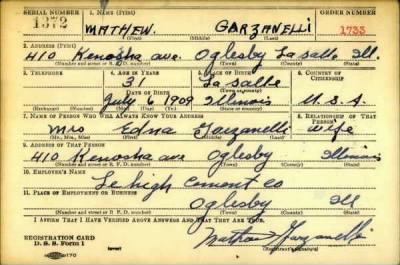 SERIAL NUMBER 1. NAME (Print) ORDER NUMBER
1372 MATHEW. GARZANELLI 1733
(First) (Middle) (Last)
2. ADDRESS (Print)
410 Kenosha ave. Oglesby La Salle Ill.
(Number and street or R. F. D. number) (Town) (County) (State)
3. TELEPHONE 4. AGE IN YEARS 5. PLACE OF BIRTH 6. COUNTRY OF CITIZENSHIP
31 La Salle
DATE OF BIRTH (Town or county)
July 1909 Illinois U.S.A.
(Exchange) (Number) (Mo.) (Day) (Yr.) (State or country)
7. NAME OF PERSON WHO WILL ALWAYS KNOW YOUR ADDRESS 8. RELATIONSHIP OF THAT PERSON
Mrs Edna Garzanelli wife
(Mr., Mrs., Miss) (First) (Middle) (Last)
9. ADDRESS OF THAT PERSON
410 Kenosha ave Oglesby Illinois
(Number and street or R. F. D. number) (Town) (County) (State)
10. EMPLOYER'S NAME
Lehigh cement co
11. PLACE OF EMPLOYMENT OR BUSINESS
Oglesby Ill
(Number and street or R. F. D. number) (Town) (County) (State)
I AFFIRM THAT I HAVE VERIFIED ABOVE ANSWERS AND THAT THEY ARE TRUE.
REGISTRATION CARD
D. S. S. Form 1 Mathew Garzanelli
(Registrant's signature)